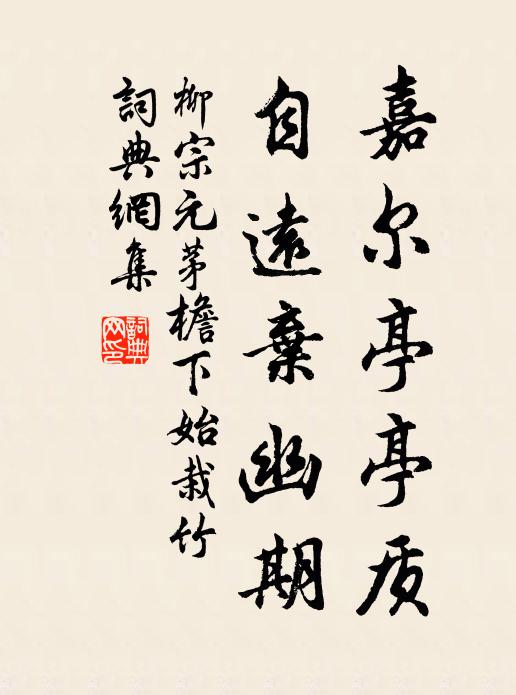 嘉尔亭亭质
自遠棄幽期
柳宗元茅檐下始栽竹
詞典網集
詞典网印